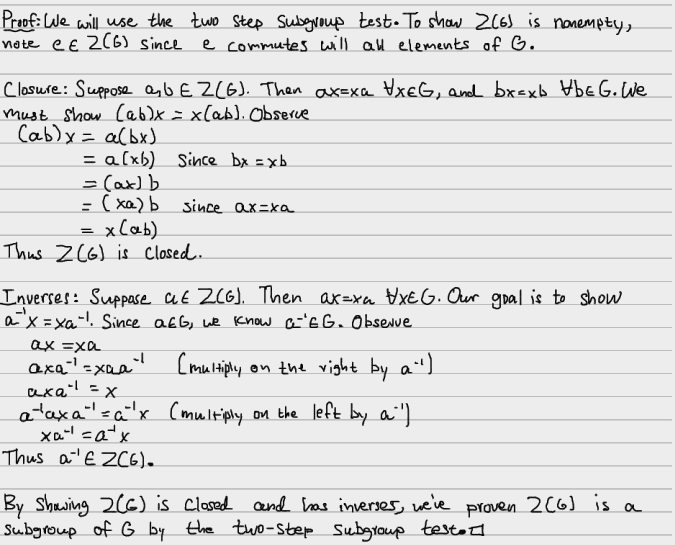 Proof: We will use the two step subgroup test. To show Z(G) is nonempty,
note e ∈ Z(G) since e commutes will all elements of G.
Closure: Suppose a,b ∈ Z(G). Then ax=xa ∀x∈G, and bx=xb ∀b∈G. We
must show (ab)x = x(ab). Observe
(ab)x = a(bx)
= a(xb) since bx = xb
= (ax)b
= (xa)b since ax=xa
= x(ab)
Thus Z(G) is closed.
Inverses: Suppose a∈ Z(G). Then ax=xa ∀x∈G. Our goal is to show
a⁻¹x = xa⁻¹. Since a∈G, we know a⁻¹∈G. Observe
ax = xa
axa⁻¹ = xaa⁻¹ (multiply on the right by a⁻¹)
axa⁻¹ = x
a⁻¹axa⁻¹ = a⁻¹x (multiply on the left by a⁻¹)
xa⁻¹ = a⁻¹x
Thus a⁻¹ ∈ Z(G).
By showing Z(G) is closed and has inverses, we've proven Z(G) is a
subgroup of G by the two-step subgroup test. □